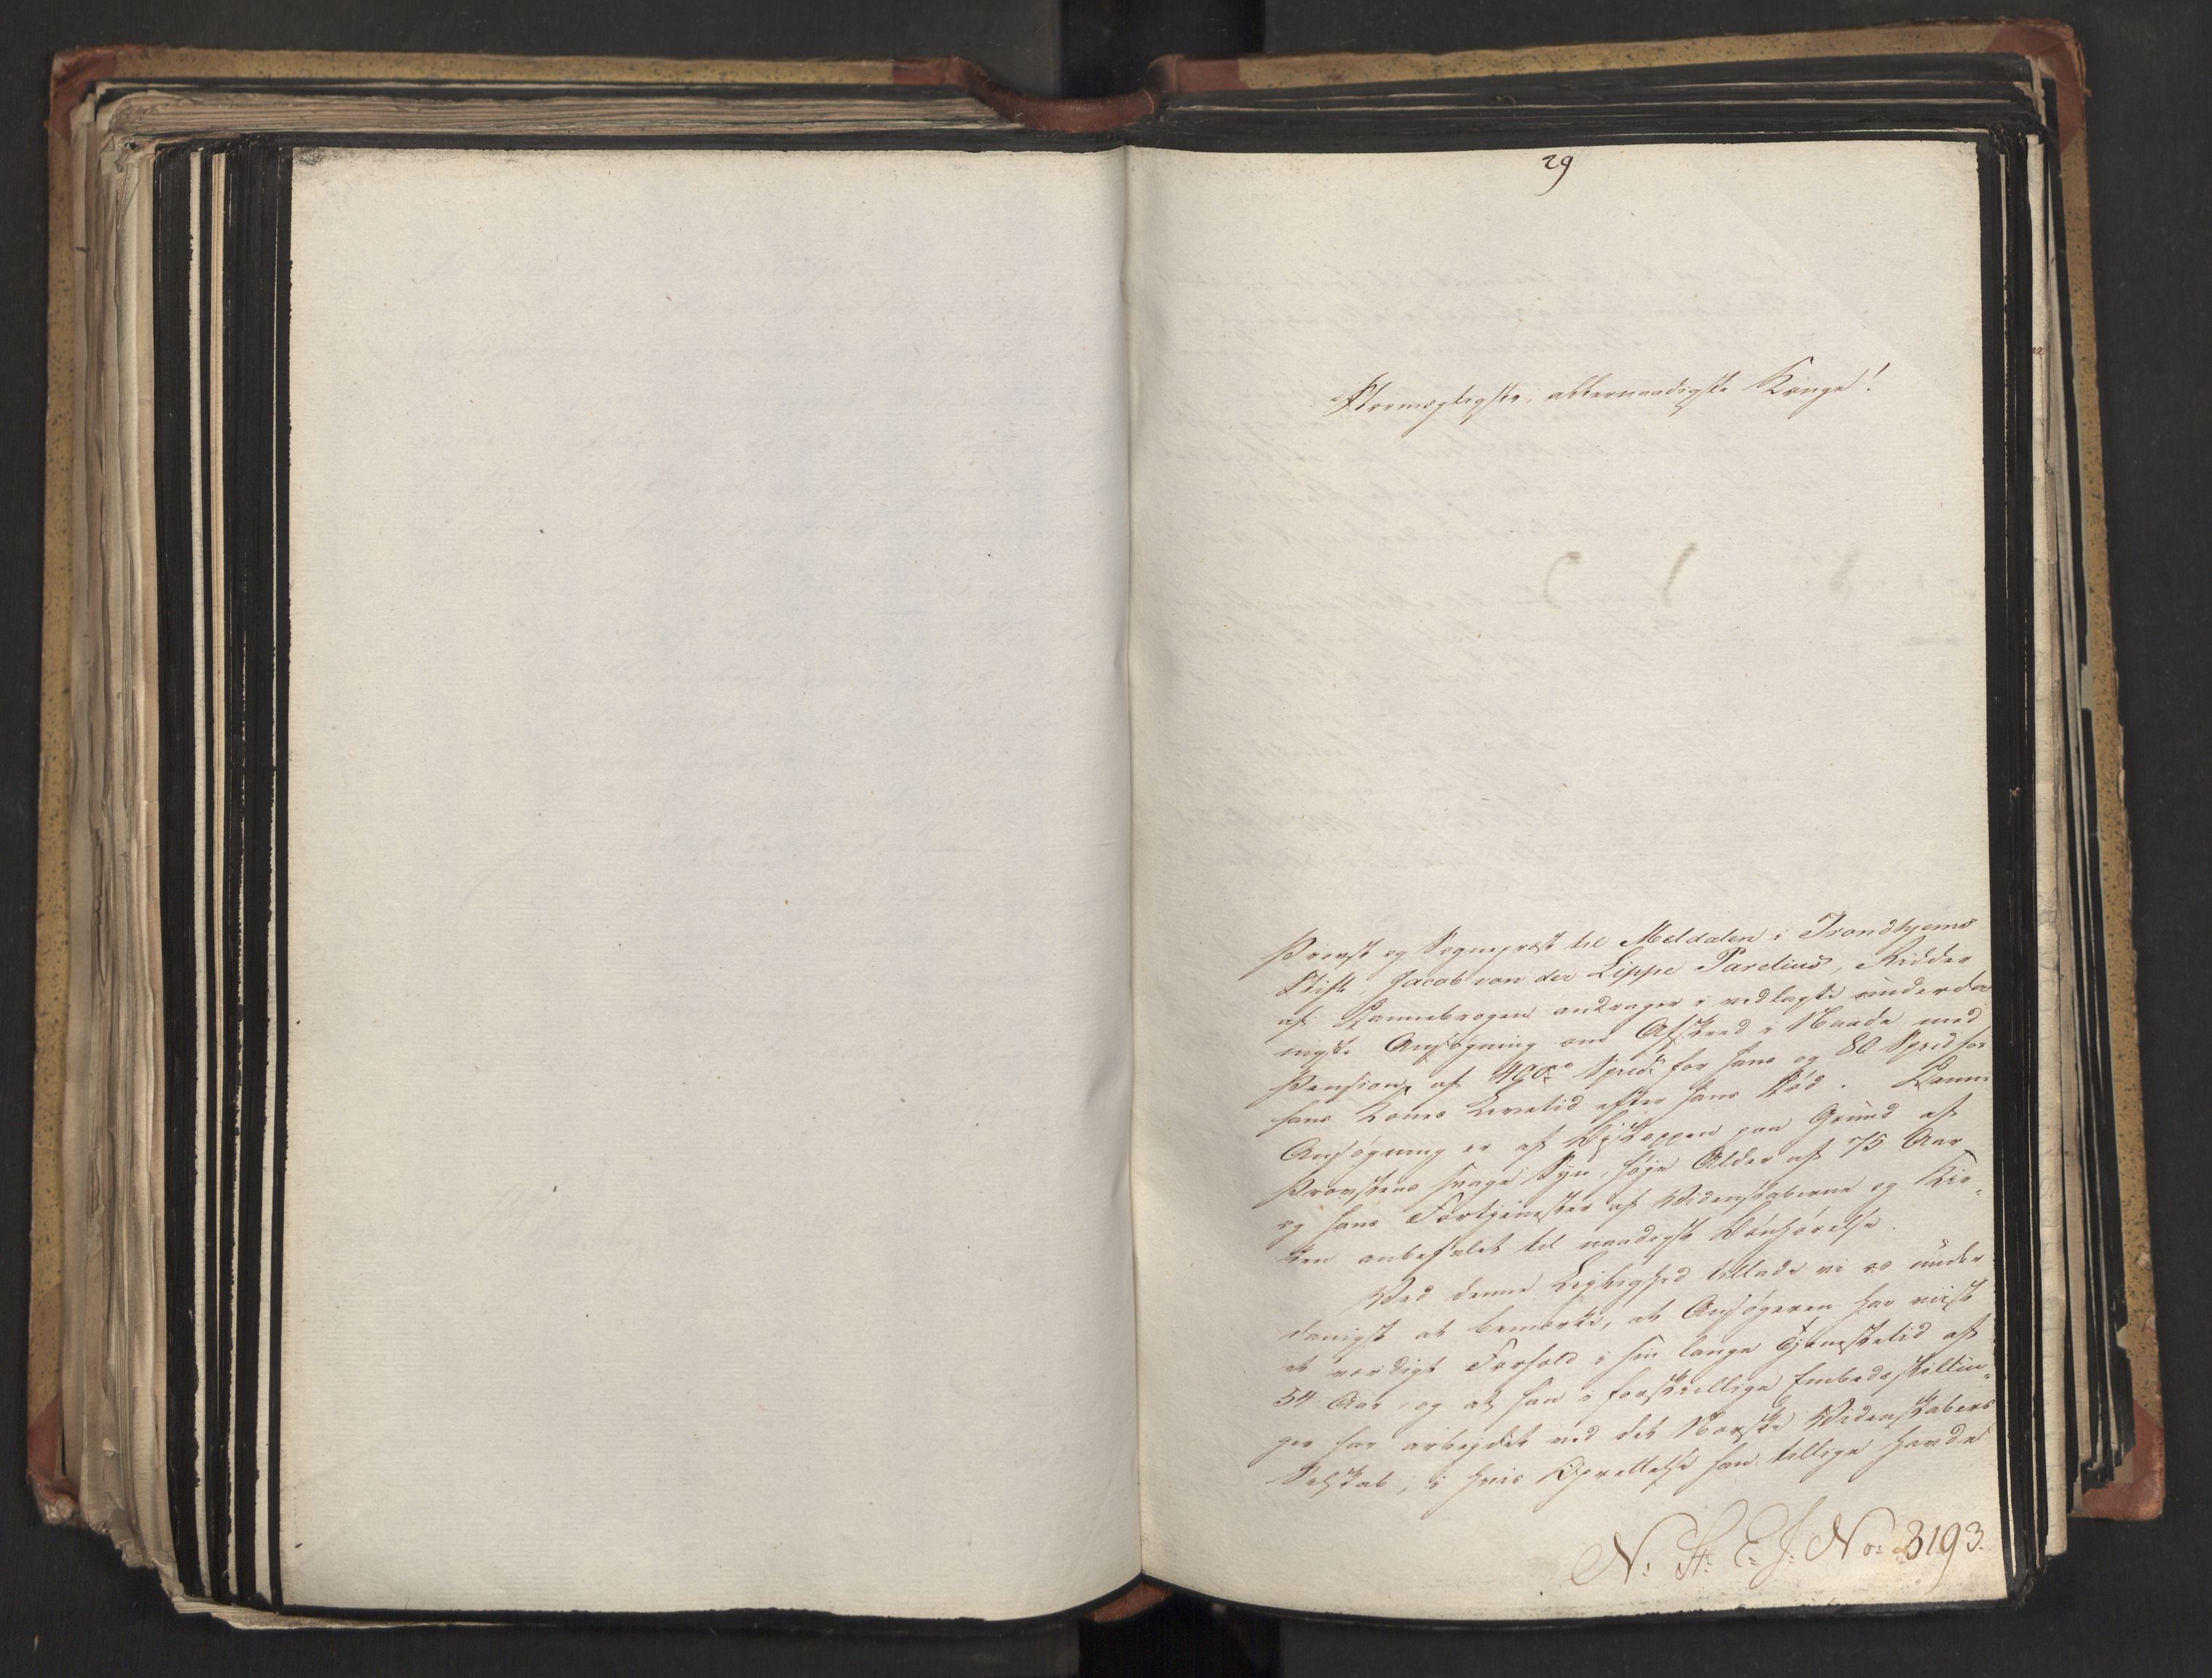 29
Stormægtigste, allernaadigste Konge!
Provst og Sognepræst til Meldalen i Trondhjems
Stift, Jacob von der Lippe Parelius, Ridder
af Dannebrogen andrager i vedlagte underda
nigste Ansøgning om Afskeed i Naade med
Pension af 400 Spd for hans og 80 Spd for
hans Kones Levetid efter hans Død. Denne
Ansøgning er af Biskoppen paa Grund af
Provstens svage Syn, høje Alder af 75 Aar
og hans Fortjenester af Videnskaberne og Kir-
ken anbefalet til naadigst Bønhørelse.
Ved denne Lejlighed tillade vi os under
danigst at bemærke, at Ansøgeren har viist
et værdigt Forhold i sin lange Tjenestetid af
54 Aar, og at han i forskiellige Embedsstillin-
ger har arbejdet ved det Norske Videnskabers
Selskab, i hvis Oprettelse han tillige havde
N: St: E: J: No: 3193.